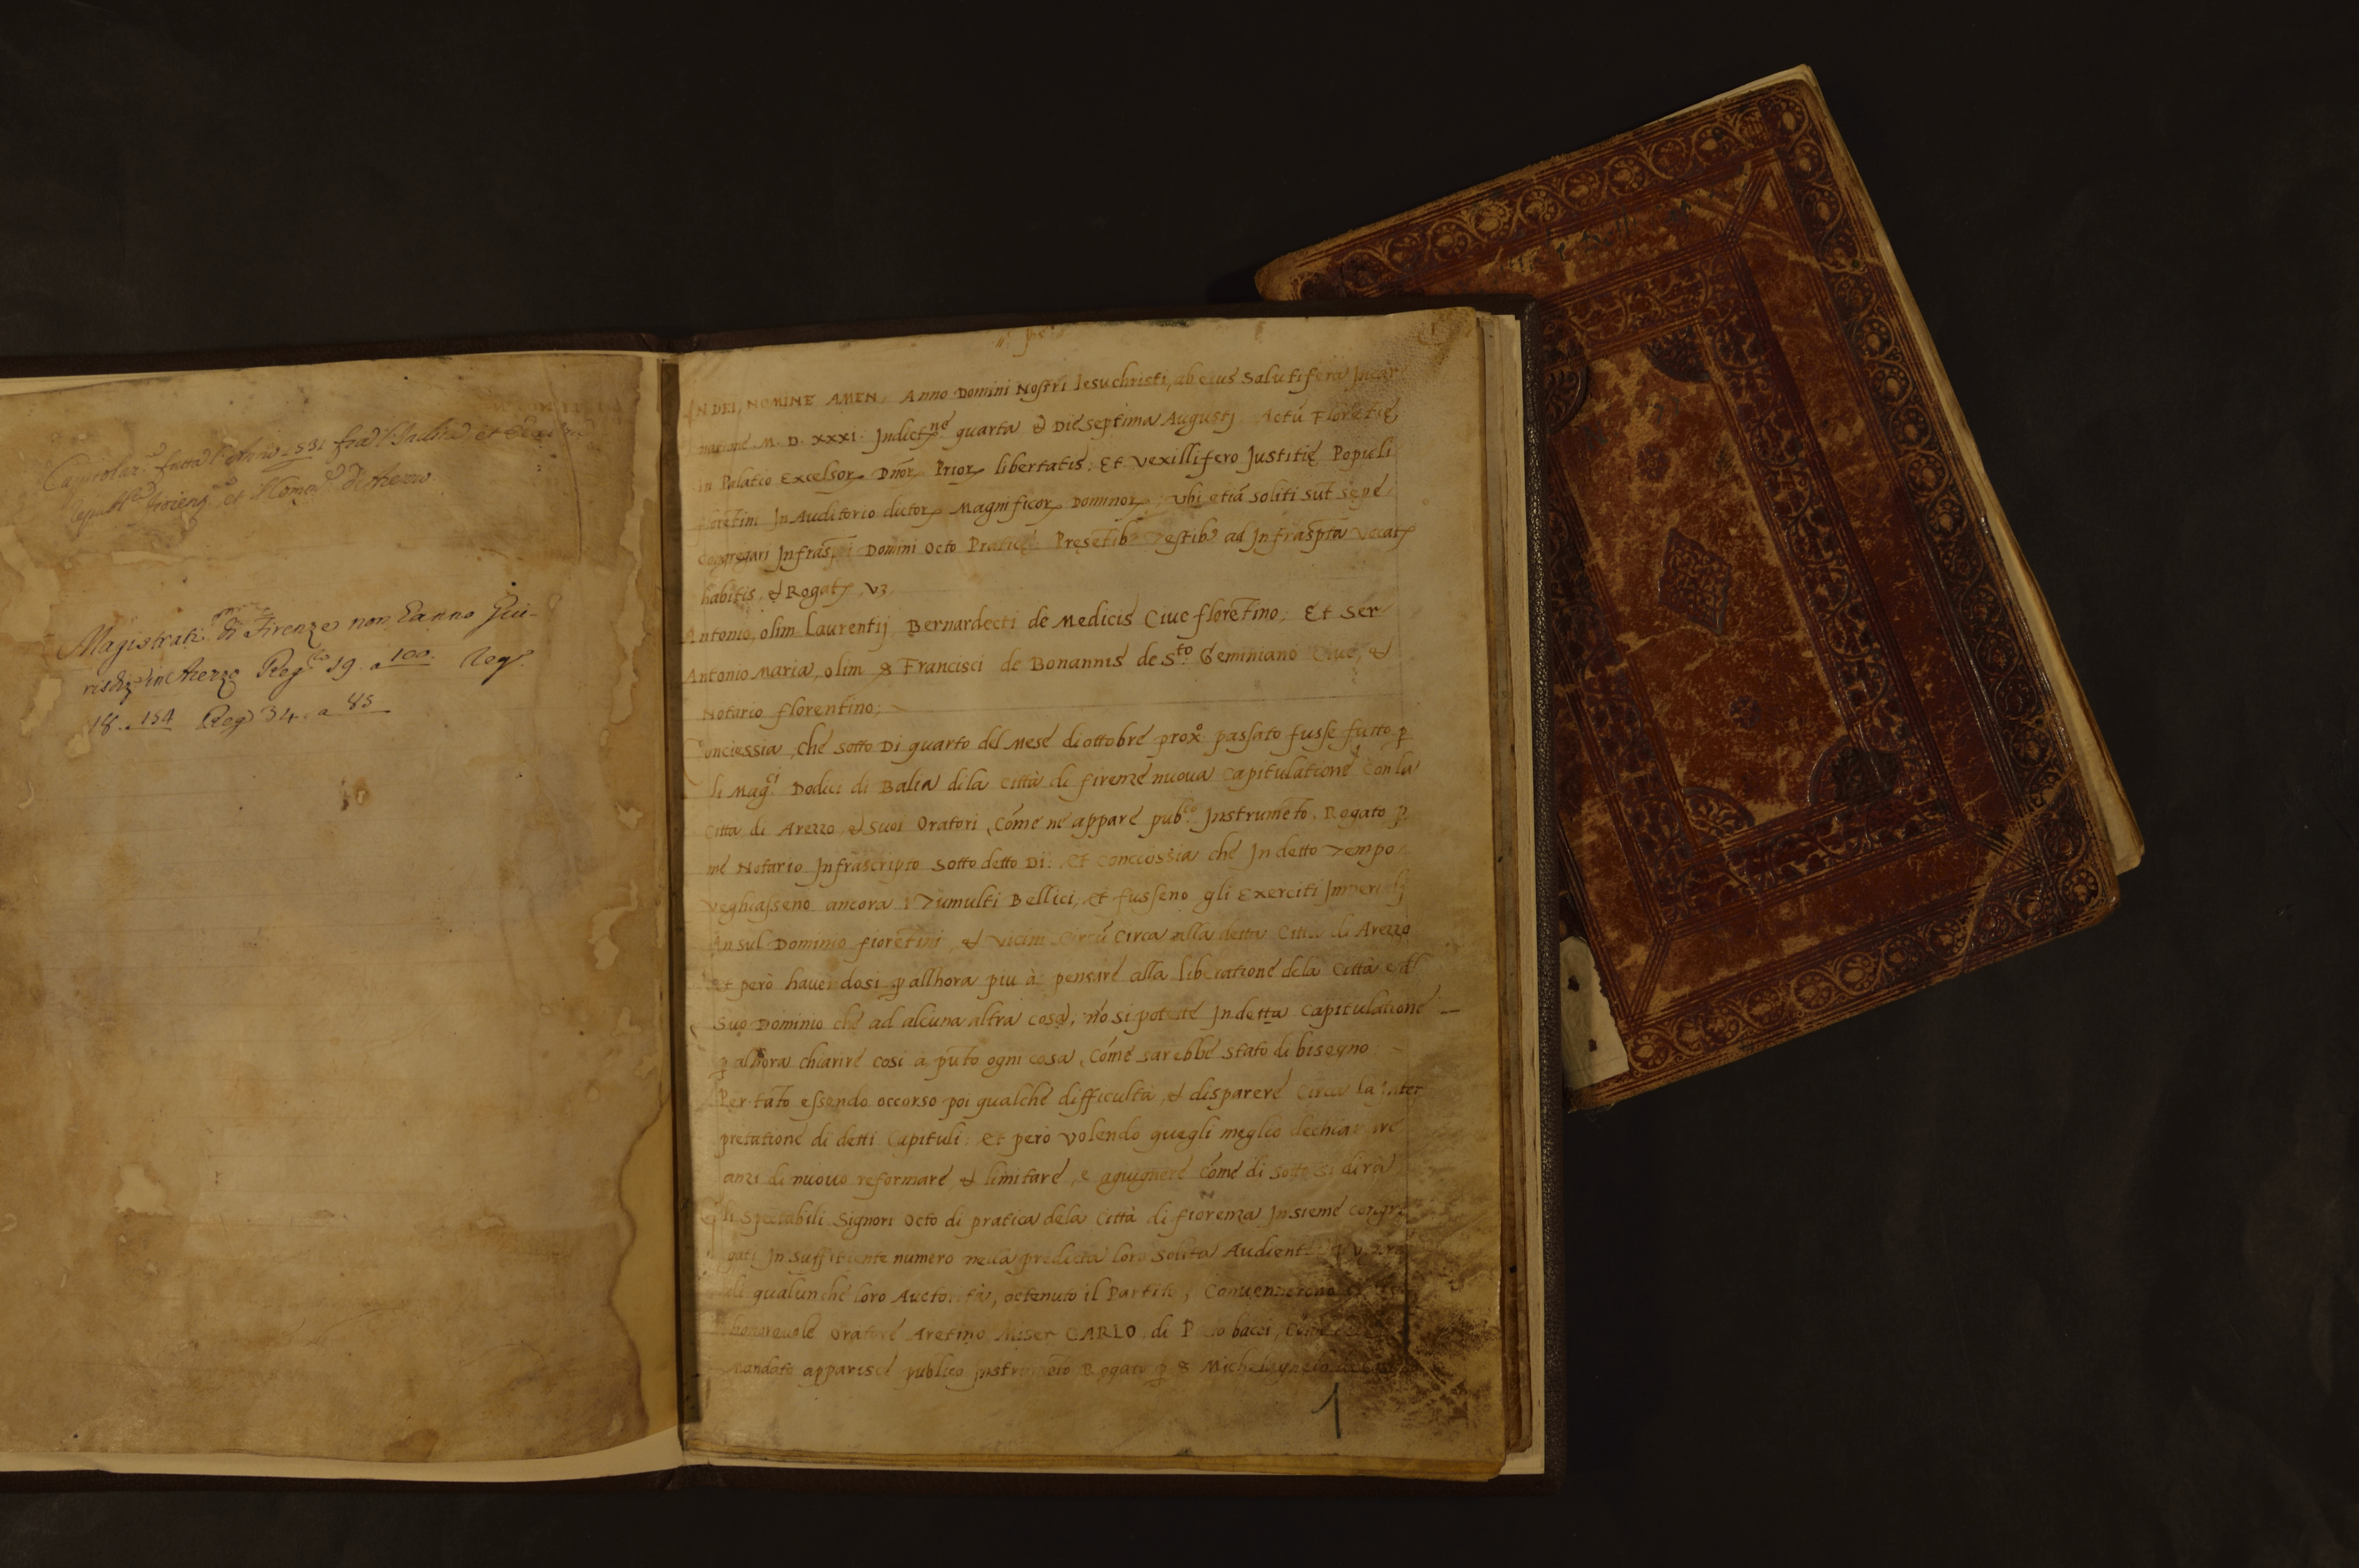 Capitolaz.e fatta l'Anno 1531 fra l'Balia et
Repub.ca Fiorenz.na et Homi di Arezzo.
Magistrati di Firenze non hanno Giu-
risdiz.e in Arezzo Reg.ro 19. a 100. Reg.o
18. a 154 Reg.o 34. a 85
IN DEI, NOMINE AMEN. Anno Domini Nostri Iesuchristi, ab eius Salutifera Incar
natione M. D. XXXI. Indict.ne quarta & Die septima Augustj Actū Florētię,
In Palatio Excelsor. Dnor. Prior. libertatis; Et Vexillifero Justitię Populi
florētini In Auditorio dictor. Magnificor. Dominor., Vbi etiā soliti sūt sępe
Cōgregari Infraspti Domini Octo Praticę Presētib. Testib. ad Infraspta Vocat.
habitis, & Rogat., vz,
Antonio, olim Laurentij Bernardecti de Medicis Ciue florētino; Et Ser
Antonio Maria, olim S Francisci de Bonannis de S.to Geminiano Ciue, &
Notario florentino;
Conciessia, che sotto Di quarto del Mese di ottobre prox.o passato fusse fatto p
li Mag.ci Dodici di Balia dila Città di firenze nuova Capitulatione Con la
Città di Arezzo, & suoi Oratori, Cōme ne appare pub.co Instrumēto, Rogato p
me Notario Infrascripto sotto detto Di: Et Conciossia che In detto Tempo
Veghiasseno ancora i Tumulti Bellici, Et fusseno gli Exerciti Imperialj
In sul Dominio fiorētini, & vicini Circū Circa alla detta Città di Arezzo
Et però hauendosi p allhora piu à pensare alla liberatione dela Città e del
Suo Dominio che ad alcuna altra cosa, nō si potette In detta Capitulatione
p alhora chiarire cosi à pūto ogni cosa, Cōme sarebbe stato di bisogno:
Per tāto essendo occorso poi qualche difficultà, & disparere Circa la Inter
pretatione di detti Capituli: Et però Volendo quegli meglio dechiarare
anzi di nuouo reformare, & limitare, e agiugnere Cōme di sotto si dirà,
Gli Spectabili Signori Octo di pratica dela Città di fiorenza Insieme congre
gati In suffitiente numero nella predicta loro Solita Audientia
di qualunche loro Auctorità, octenuto il Partito, Conuennerono
honoreuole Oratore Aretino Miser CARLO, di P bacci, Cōme
Mandato apparisce publico Instrumēto Rogato p S Michelagnelo
1